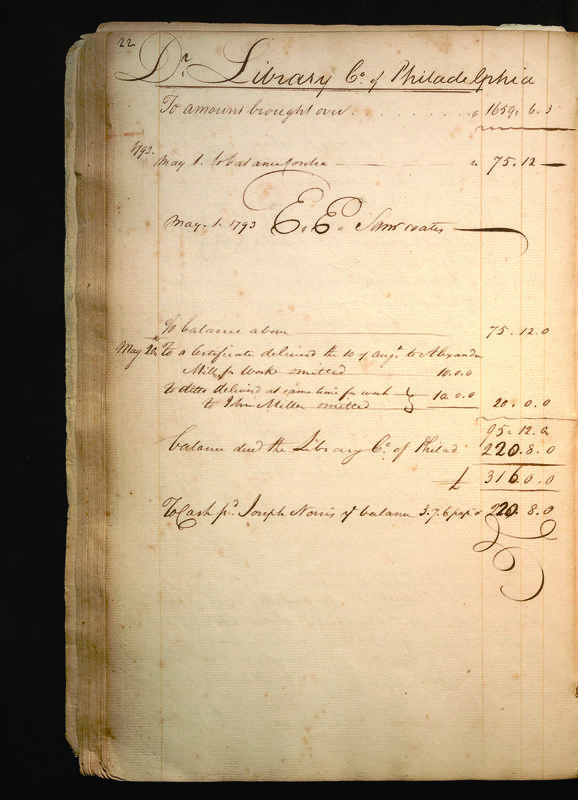 22
Dr. Library Co. of Philadelphia
To amount brought over . . . . . . . . 1659. 6. 3
1793. May 1. to balance 75. 12 —
May. 1. 1793 E. E. Saml Coates
To balance above 75. 12. 0
May 20 To a Certificate delivered the 10 of augt to Alexander
Miller for Work omitted 10. 0. 0
To ditto delivered at same time for work } 10 0. 0
to John Miller omitted 20. 0. 0
95. 12. 0
balance due the Library Co. of Philad 220. 8. 0
£ 316 0. 0
To Cash pd. Joseph Norris ye balance 3. 7. 6 220. 8. 0